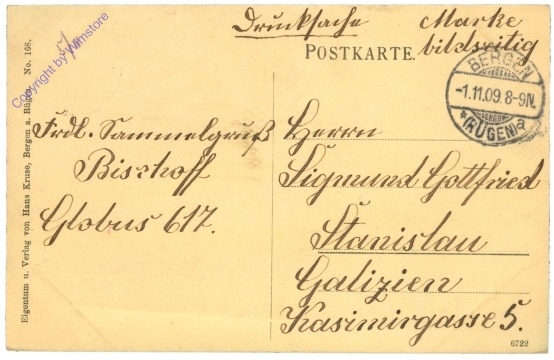 Drucksache
Marke
bildseitig
POSTKARTE.
BERGEN
-1.11.09.8-9N.
*(RÜGEN)a
Frdl. Sammelgruß
Bischoff
Globus 617.
Herrn
Sigmund Gottfried
Stanislau
Galizien
Kasimirgasse 5.
6722
Eigentum u. Verlag von Hans Kruse, Bergen a. Rügen. No. 168.
Copyright by Wimstore